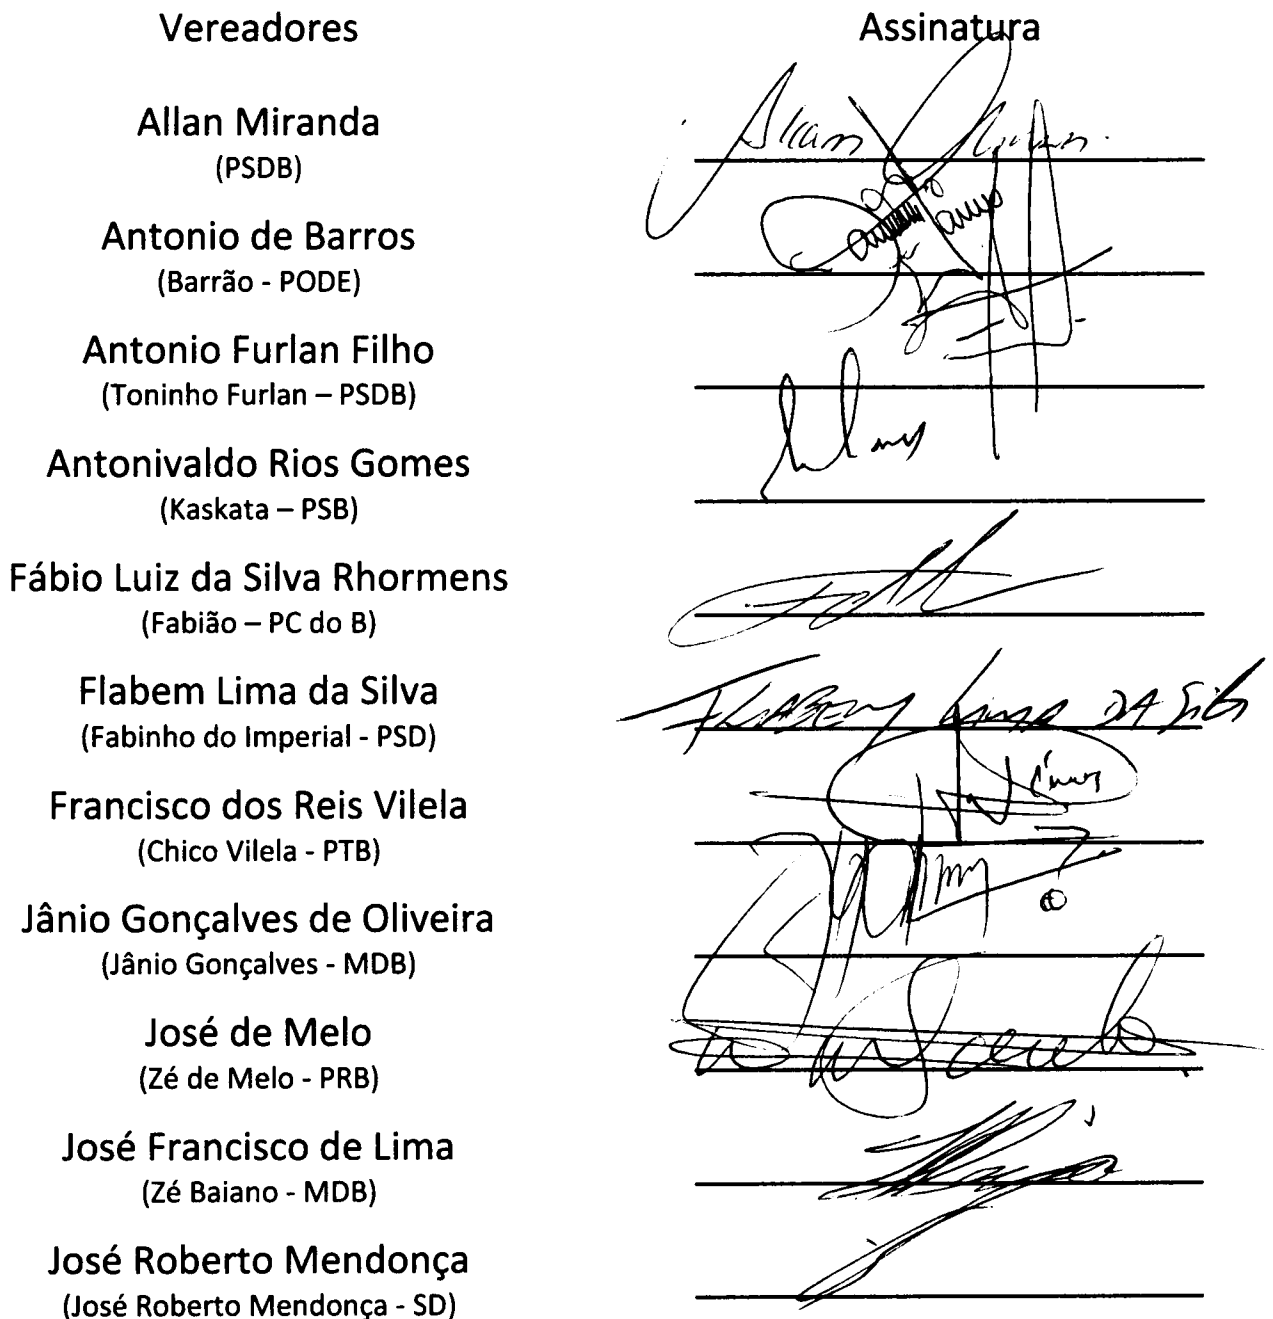 Vereadores Assinatura
Allan Miranda
(PSDB)
Antonio de Barros
(Barrão - PODE)
Antonio Furlan Filho
(Toninho Furlan – PSDB)
Antonivaldo Rios Gomes
(Kaskata – PSB)
Fábio Luiz da Silva Rhormens
(Fabião – PC do B)
Flabem Lima da Silva FLABEM Lima DA Silva
(Fabinho do Imperial - PSD)
Francisco dos Reis Vilela
(Chico Vilela - PTB)
Jânio Gonçalves de Oliveira
(Jânio Gonçalves - MDB)
José de Melo
(Zé de Melo - PRB)
José Francisco de Lima
(Zé Baiano - MDB)
José Roberto Mendonça
(José Roberto Mendonça - SD)